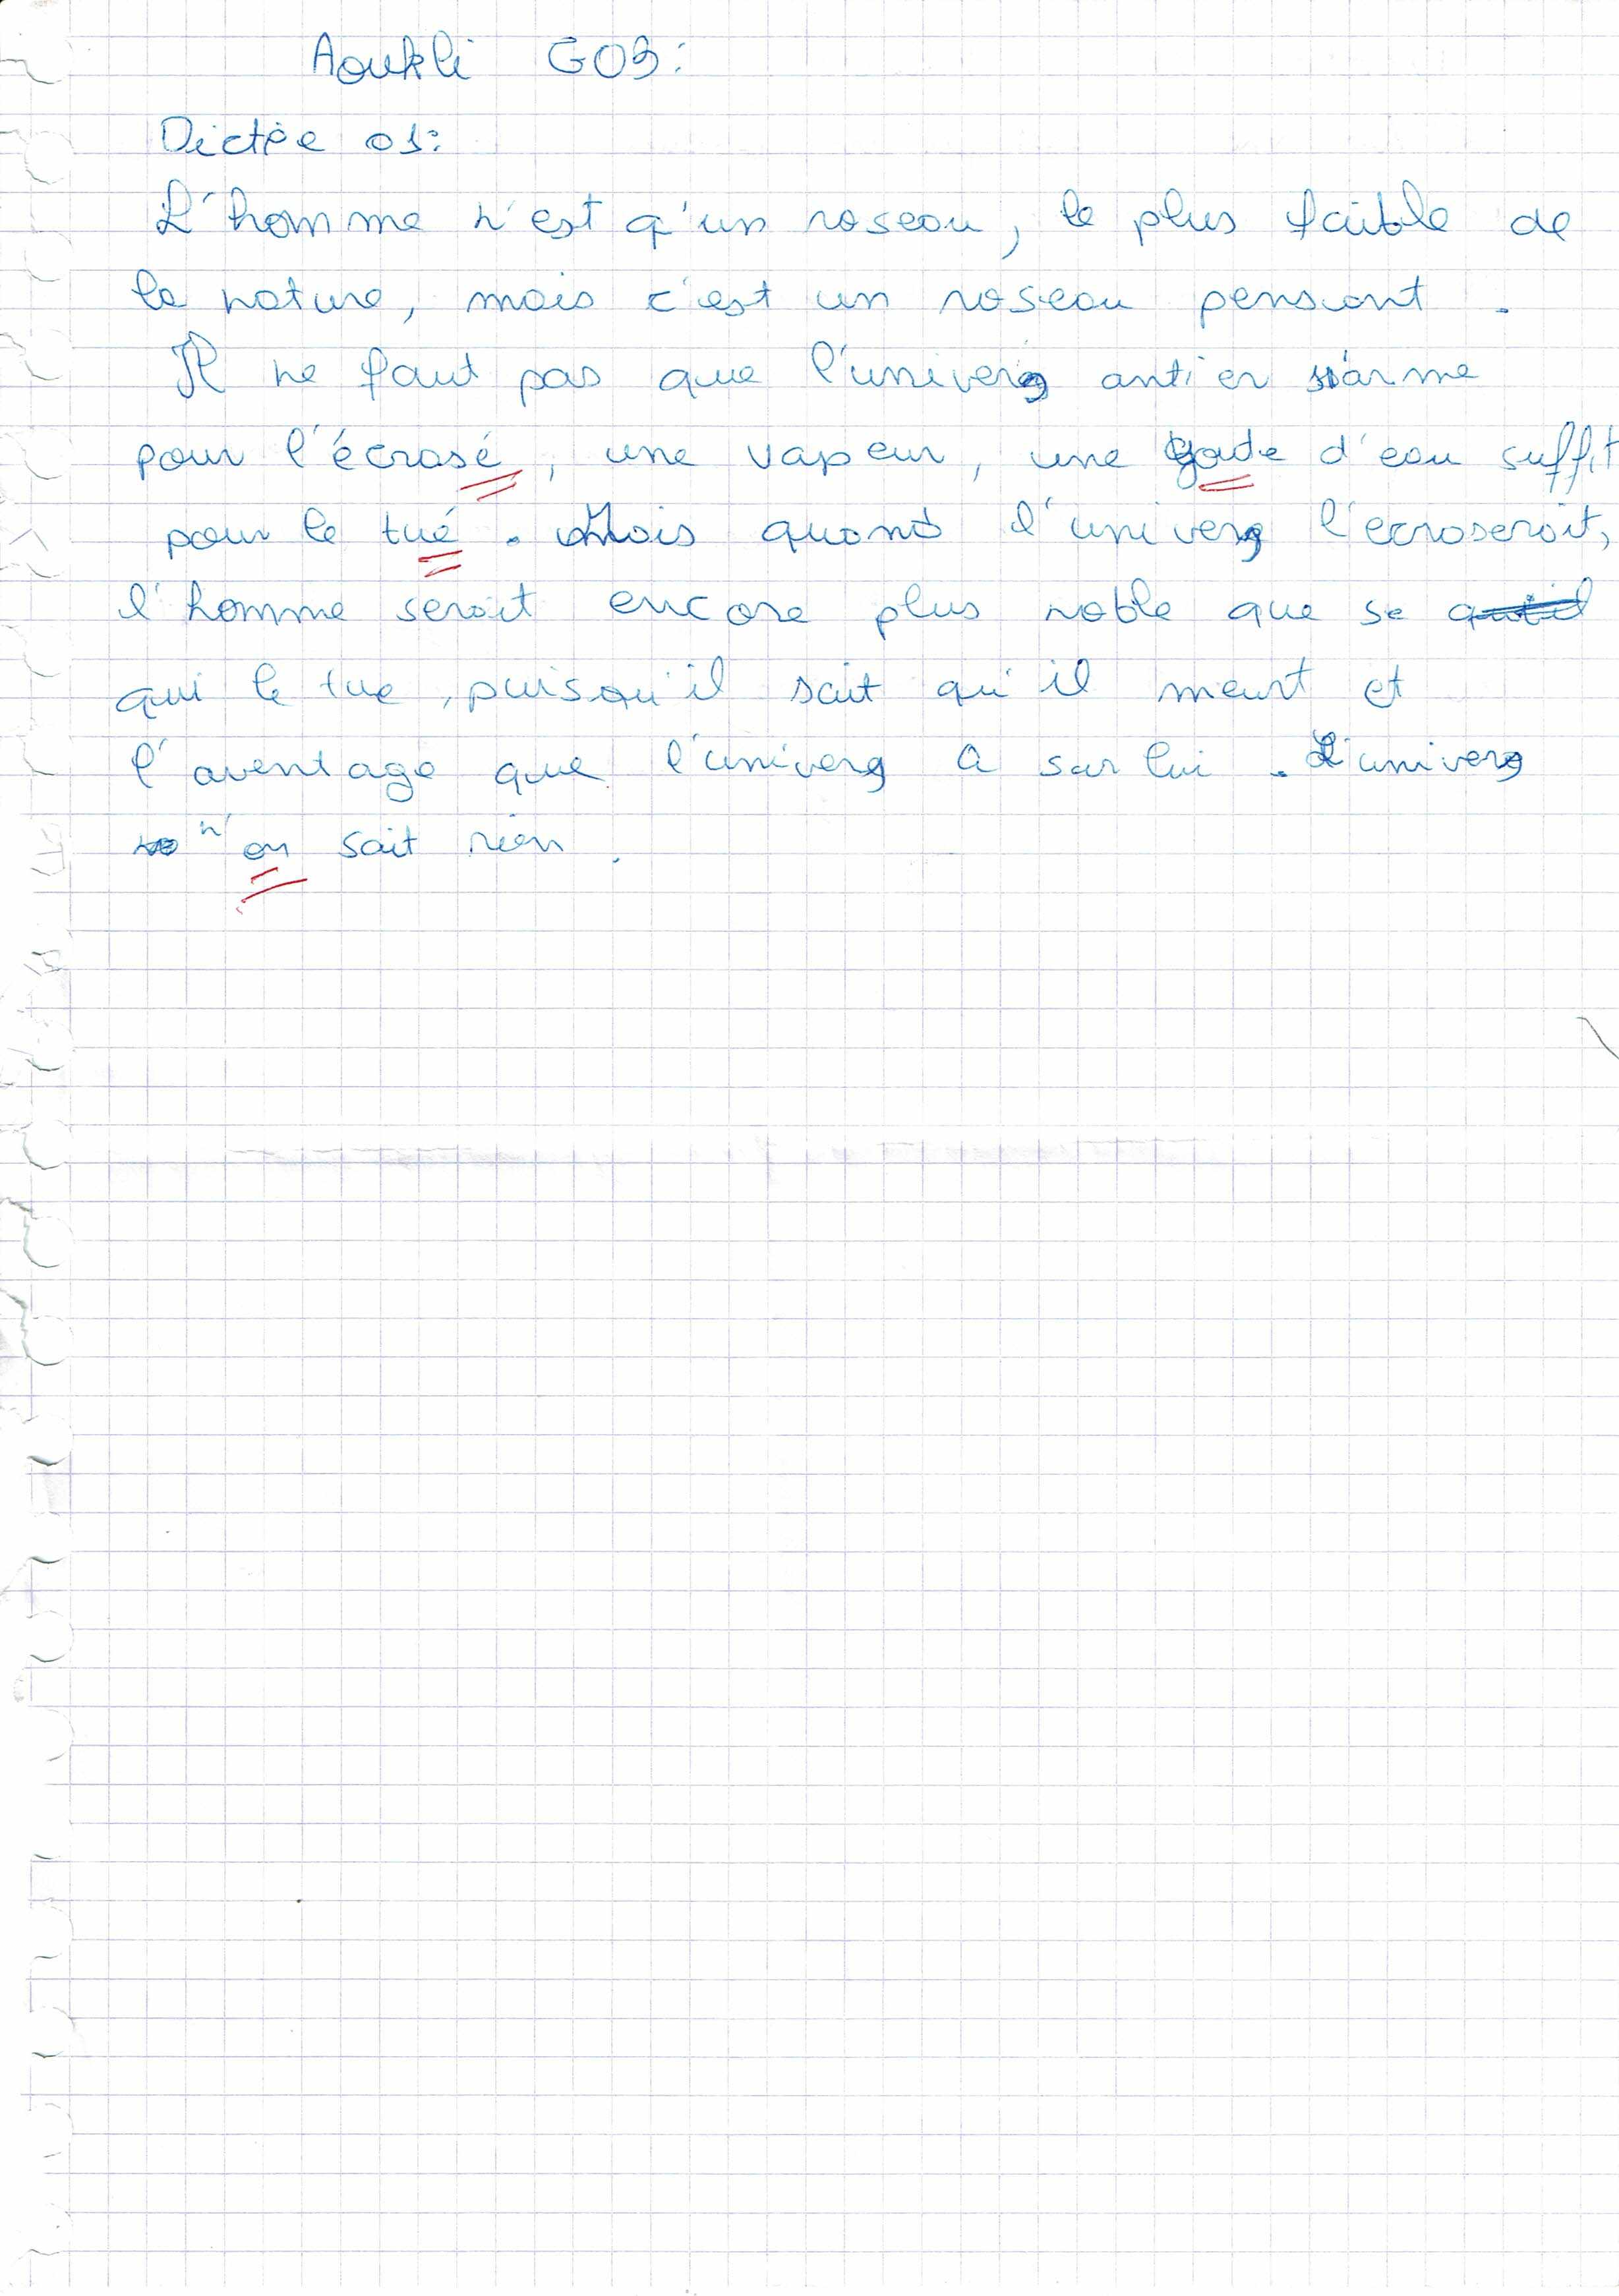 Aoukli G03:
Dictée 01:
L'homme n'est q'un roseau, le plus faible de
la nature, mais c'est un roseau pensant.
Il ne faut pas que l'univers antier s'arme
pour l'écrasé, une vapeur, une goute d'eau suffit
pour le tué. Mais quand l'univers l'ecraserait,
l'homme serait encore plus noble que se
qui le tue, puisqu'il sait qu'il meurt et
l'aventage que l'univers a sur lui. L'univers
n'en sait rien.